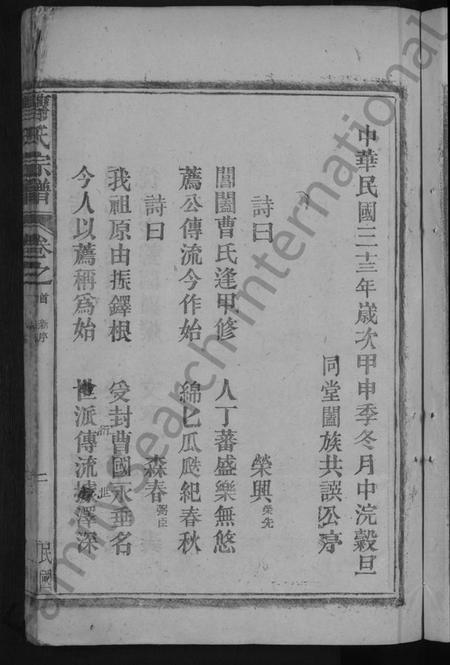 中華民國三十三年歲次甲申季冬月中浣穀旦
同堂闔族共譔公序
詩曰 榮興榮先
閶闔曹氏逢甲修 人丁蕃盛樂無悠
薦公傳流今作始 綿乚瓜瓞紀春秋
詩曰 森春弼臣
我祖原由振鐸根 受封曹國永垂名
今人以薦稱為始 世派傳流據澤深
氏宗譜 卷之首 新序 一 民國
familysearch international